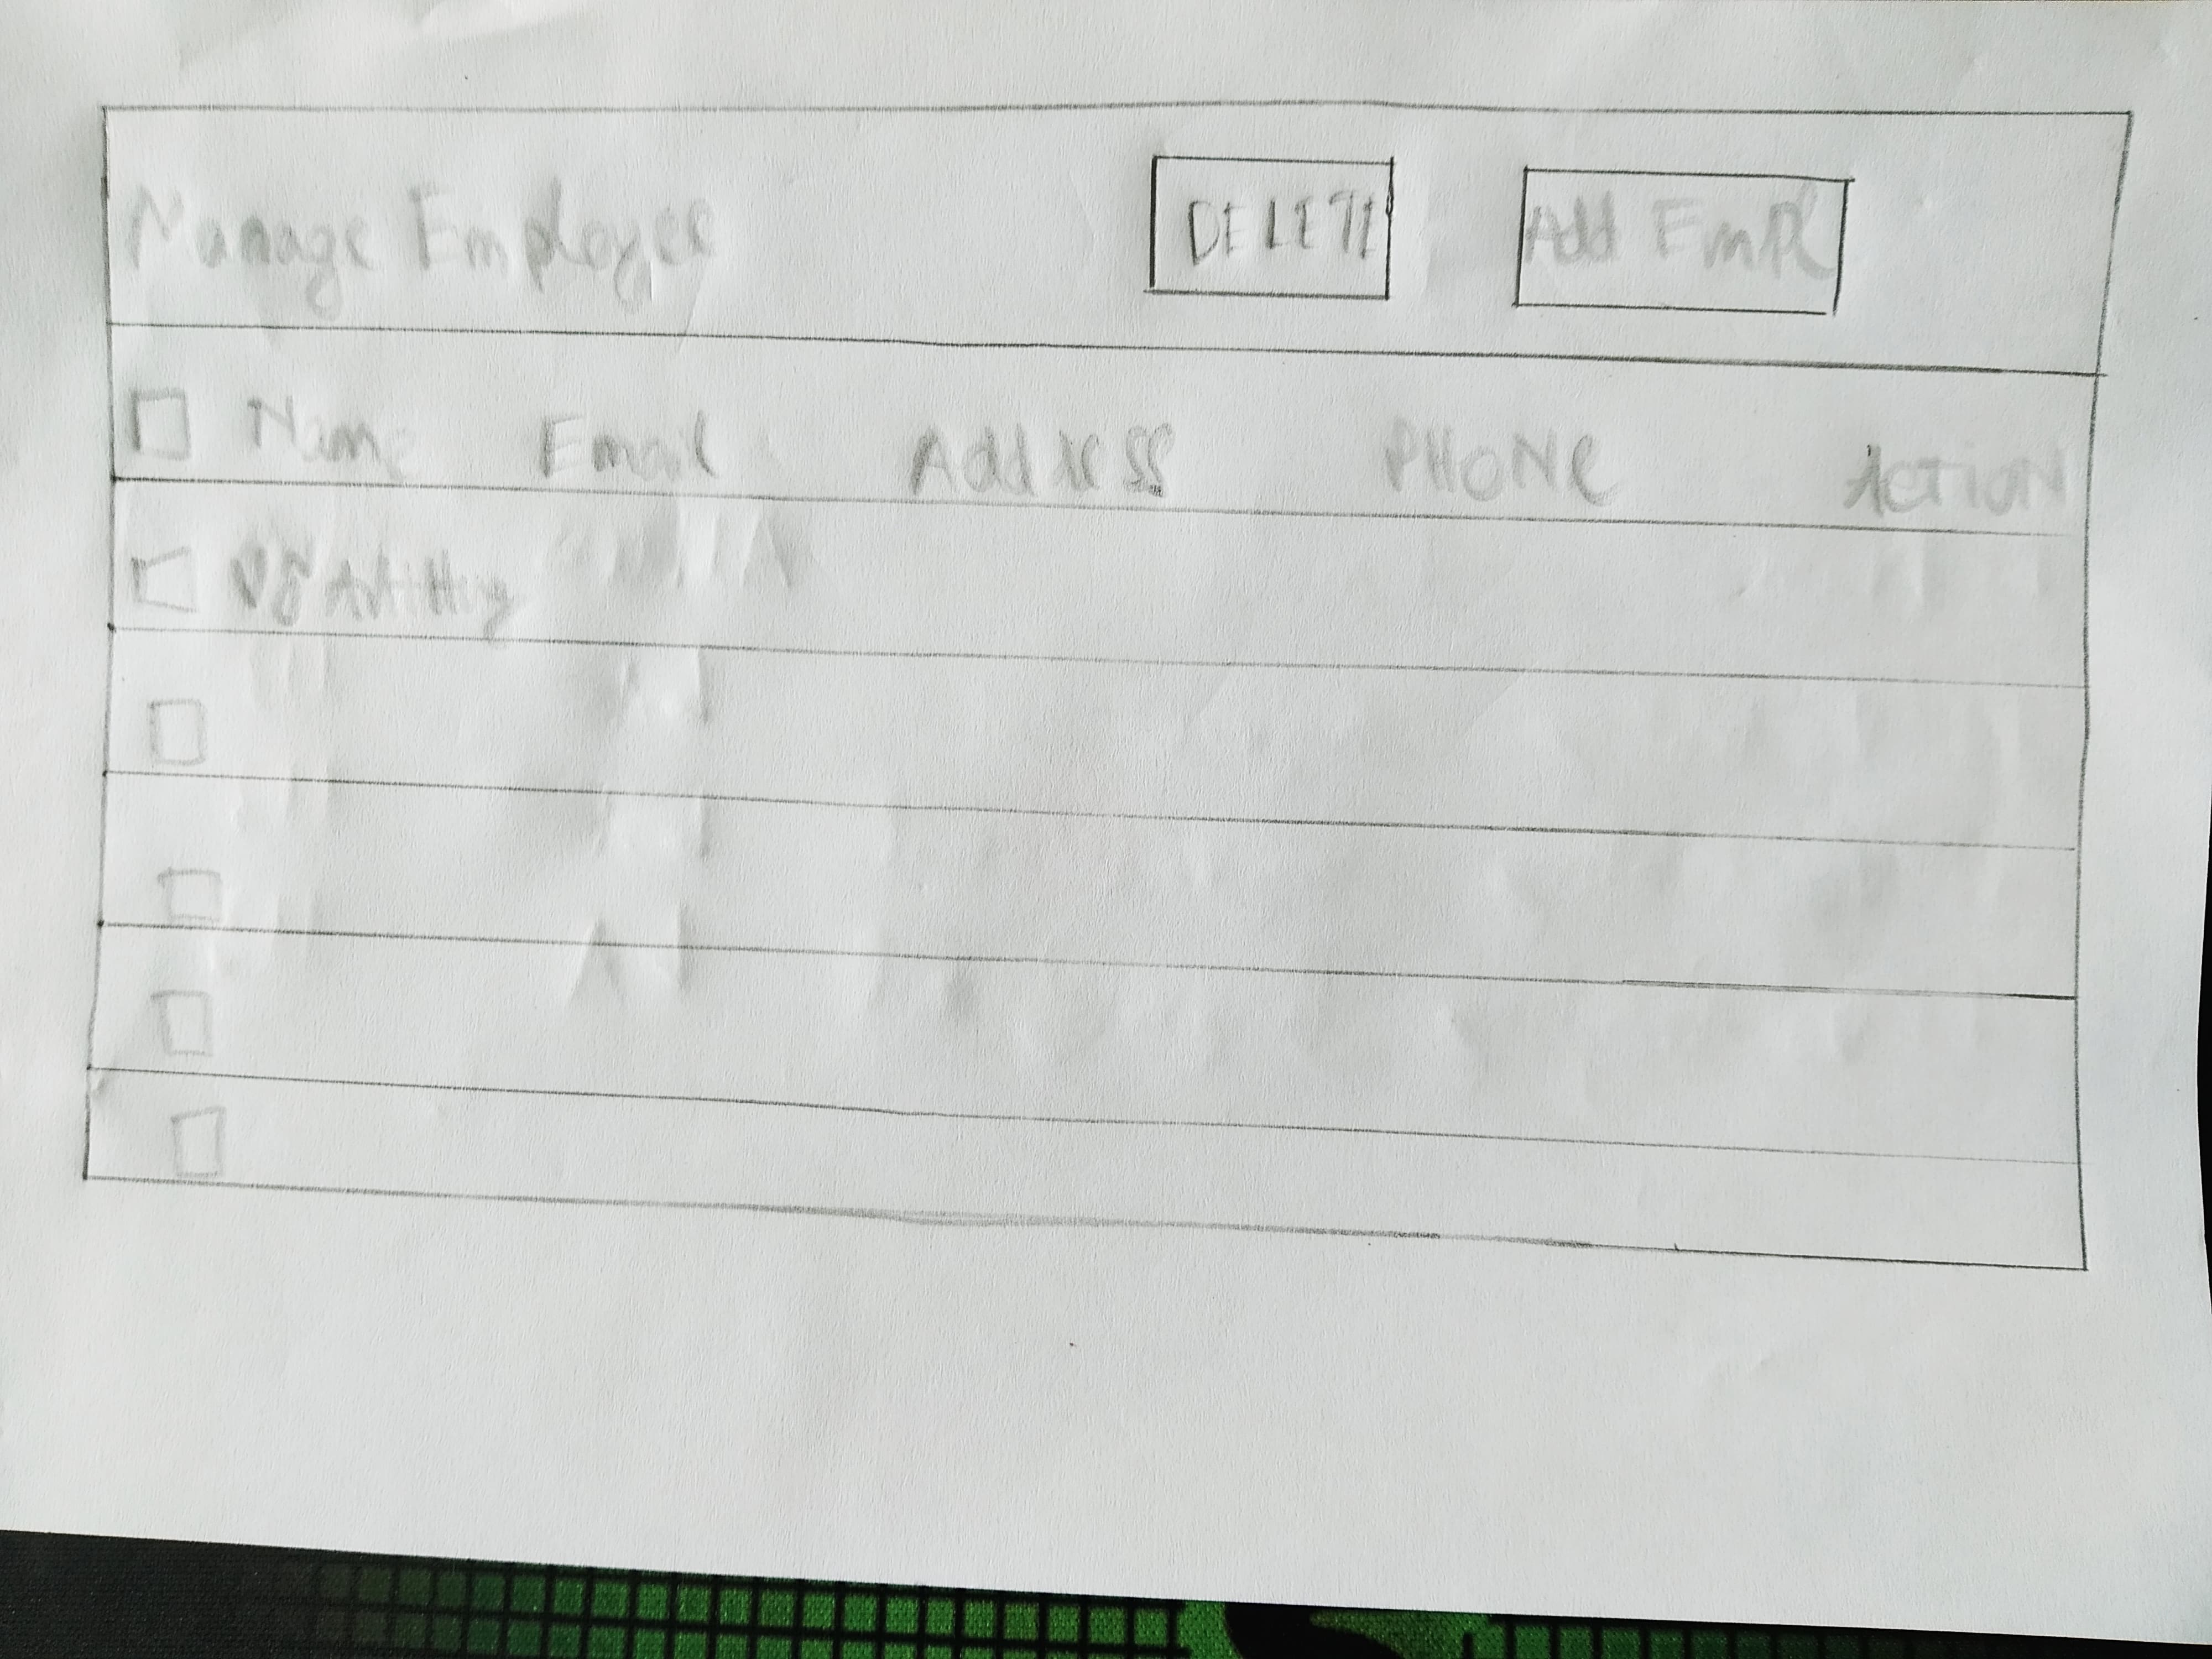 Manage Employee DELETE Add EmP
Name Email Address PHONE ACTION